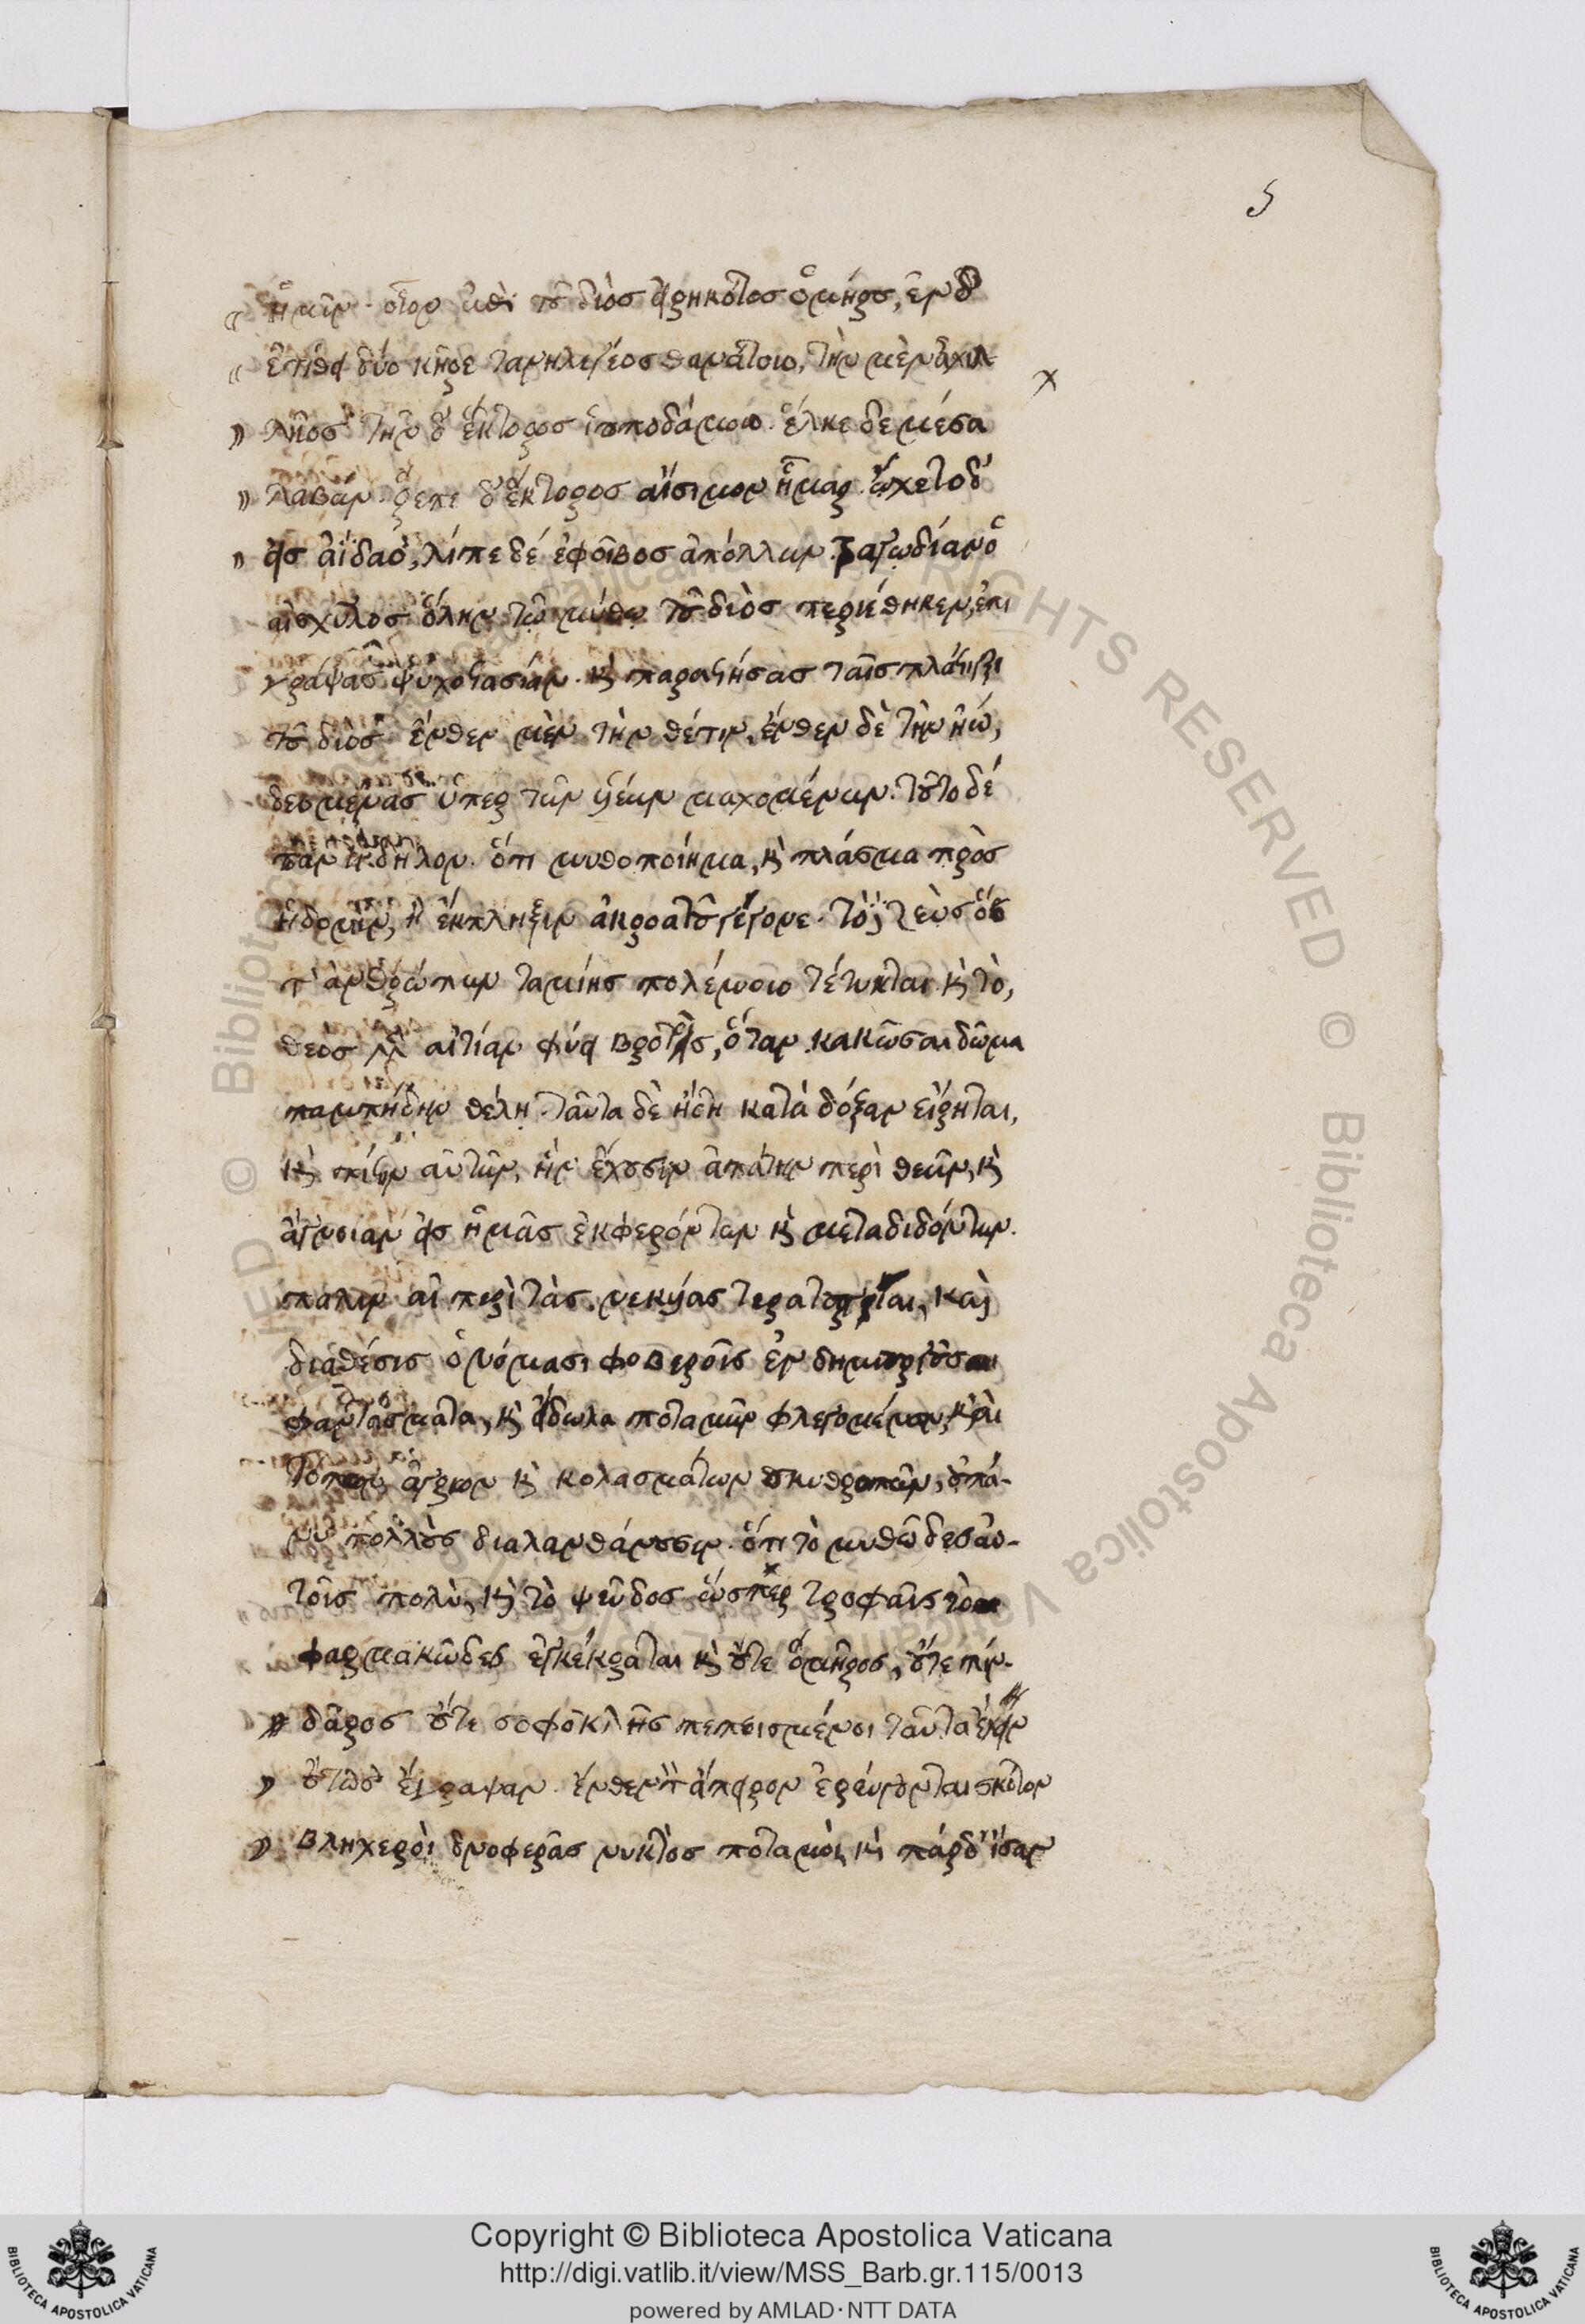 5
ἡμῖν. οἷον ἐπὶ τοῦ διὸς εἰρηκότος ὁμήρου, ἐν δ'
ἐτίθει δύο κῆρε τανηλεγέος θανάτοιο, τὴν μὲν ἀχιλ
λῆος τὴν δ' ἕκτορος ἱπποδάμοιο. ἕλκε δε μέσα
λαβών. ῥέπε δ' ἕκτορος αἴσιμον ἦμαρ. ᾤχετο δ'
εἰς ἀΐδαο, λίπε δέ ἑ φοῖβος ἀπόλλων. τραγωδίαν ὁ
αἰσχύλος ὅλην τῶ μύθω τοῦ διὸς περιέθηκεν, ἐπι
γράψας ψυχοστασίαν. καὶ παραστήσας ταῖς πλάστιγξι
τοῦ διὸς ἔνθεν μὲν τὴν θέτιν, ἔνθεν δὲ τὴν ἠώ,
δεομένας ὑπερ τῶν υἱέων μαχομένων. τοῦτο δέ
παντὶ δῆλον. ὅτι μυθοποίημα, καὶ πλάσμα πρὸς
ἡδονὴν, ἢ ἔκπληξιν ἀκροατοῦ γέγονε. τὸ ζεὺς ὅς
τ' ἀνθρώπων ταμίης πολέμοιο τέτυκται. καὶ τὸ,
θεὸς μὲν αἰτίαν φύει βροτοῖς, ὅταν κακῶσαι δῶμα
παμπήδην θέλη. ταῦτα δὲ ἤδη κατὰ δόξαν εἴρηται,
καὶ πίστιν αὐτῶν, ἣν ἔχουσιν ἀπάτην περὶ θεῶν, καὶ
ἄγνοιαν εἰς ἡμᾶς ἐκφερόντων καὶ μεταδιδόντων.
πάλιν αἱ περὶ τὰς νεκυίας τερατουργίαι, καὶ
διαθέσις ὀνόμασι φοβεροῖς ἐν δημιουργοῦσαι
φαντάσματα, καὶ εἴδωλα ποταμῶν φλεγομένων, καὶ
τόπων ἀγρίων καὶ κολασμάτων σκυθρωπῶν, οὐ πά-
νυ πολλοὺς διαλανθάνουσιν. ὅτι τὸ μυθῶδες αὐ-
τοῖς πολὺ, καὶ τὸ ψεῦδος ὥσπερ τροφαῖς τὸ
φαρμακῶδες ἐγκέκραται καὶ οὔτε ὅμηρος, οὔτε πίν-
δαρος οὔτε σοφοκλῆς πεπεισμένοι ταῦτα ἔχειν
οὕτως ἔγραψαν. ἔνθεν τὸν ἄπειρον ἐρεύγονται σκότον
βληχεροὶ δνοφερᾶς νυκτὸς ποταμοὶ, καὶ πάρδ' ἴσαν
Copyright © Biblioteca Apostolica Vaticana
http://digi.vatlib.it/view/MSS_Barb.gr.115/0013
powered by AMLAD·NTT DATA